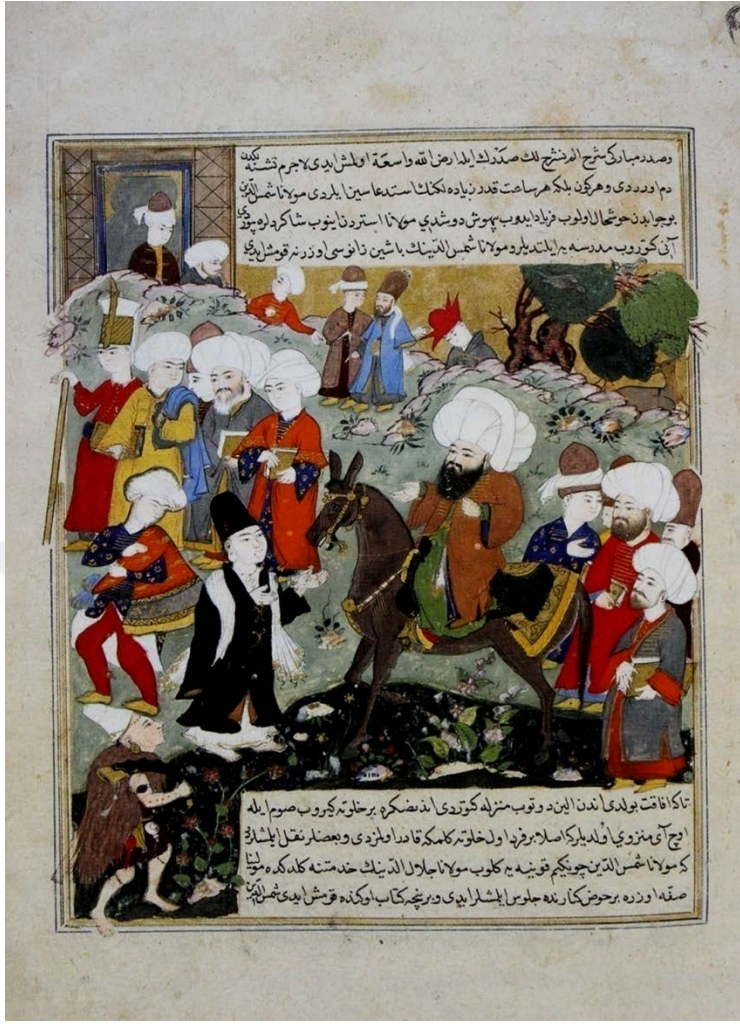 وصدر مباركى شرح الم نشرح لك صدرك ايله ارض الله واسعة اولمش ايدى لاجرم تشنه
دم اوردى و هركون بلكه هر ساعت قدرن زياده لكنك استدعاسين ايلردى مولانا شمس الدين
بو جوابدن خوشحال اولوب فرياد ايدوب بيهوش دوشدي مولانا استردن اينوب شاكردلره
آنى كوتوروب مدرسه يه ايلتديلر و مولانا شمس الدينك باشين زانوسى اوزرنه قومش ايدى
تا كه افاقت بولدى اندن الين دوتوب منزله كوتردى اندنصكره بر خلوته كيروب صوم ايله
اوچ آى منزوي اولديلر كه اصلا بر فرد اول خلوته كلمكه قادر اولمزدى و بعضلر نقل ايلمشلردر
كه مولانا شمس الدين چونكيم قونيه يه كلوب مولانا جلال الدينك خدمتنه كلدكده مولينا
صفه اوزره بر حوض كنارنده جلوس ايلمشلر ايدى و بر نيچه كتاب اوكنده قومش ايدى شمس الدين